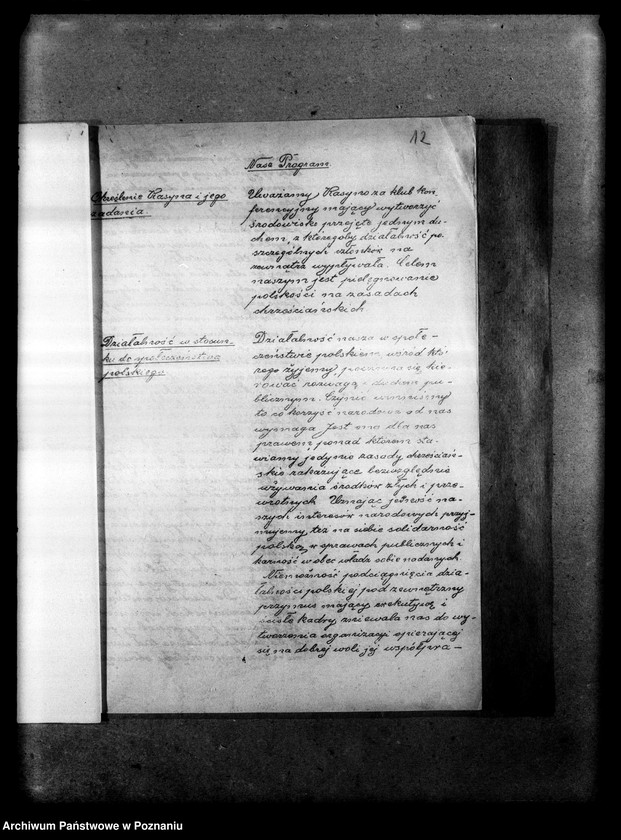 12
Nasz Program
Określenie Kasyna i jego
zadania
Uważamy Kasyno za klub kon
ferencyjny mający wytworzyć
środowisko przejęte jednym du-
chem, z któregoby działalność po-
szczególnych członków na
zewnątrz wypływała. Celem
naszym jest pielęgnowanie
polskości na zasadach
chrześciańskich
Działalność w stosun-
ku do społeczeństwa
polskiego
Działalność nasza w społe-
czeństwie polskiem wśród któ-
rego żyjemy, poczuwa się kie-
rować rozwagą i duchem pu-
blicznym. Czynić winniśmy
to co korzyść narodowa od nas
wymaga. Jest ona dla nas
prawem, ponad którem sta-
wiamy jedynie zasady chrześciań-
skie zakazujące bezwzględnie
używania środków złych i prze-
wrotnych. Uznając jedność na-
szych interesów narodowych przyj-
mujemy też na siebie solidarność
polską w sprawach publicznych i
karność wobec władz sobie nadanych.
Niemożność podciągnięcia dzia-
łalności polskiej pod zewnętrzny
przymus mający exekutywę i
ścisłe kadry, zniewala nas do wy-
tworzenia organizacyi opierającej
się na dobrej woli jej współpra-
Archiwum Państwowe w Poznaniu